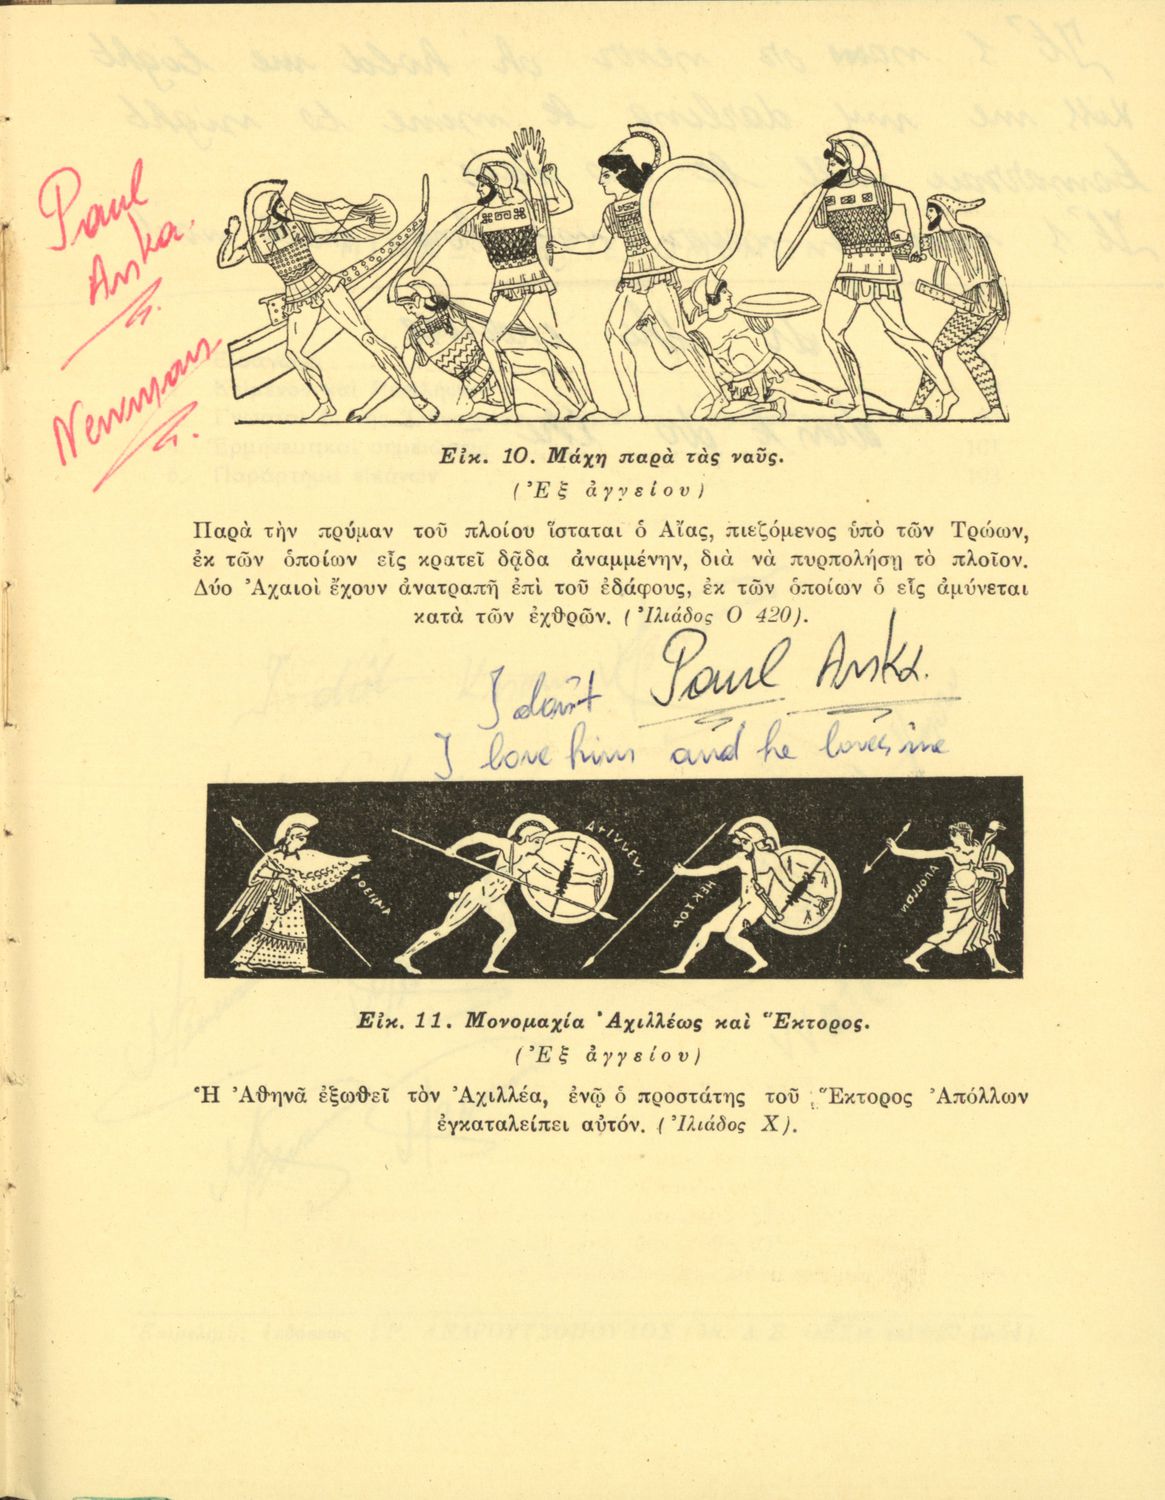 Paul
Anka.
Newman
Εἰκ. 10. Μάχη παρὰ τὰς ναῦς.
(Ἐξ ἀγγείου)
Παρὰ τὴν πρύμαν τοῦ πλοίου ἵσταται ὁ Αἴας, πιεζόμενος ὑπὸ τῶν Τρώων,
ἐκ τῶν ὁποίων εἷς κρατεῖ δᾷδα ἀναμμένην, διὰ νὰ πυρπολήσῃ τὸ πλοῖον.
Δύο Ἀχαιοὶ ἔχουν ἀνατραπῆ ἐπὶ τοῦ ἐδάφους, ἐκ τῶν ὁποίων ὁ εἷς ἀμύνεται
κατὰ τῶν ἐχθρῶν. (Ἰλιάδος Ο 420).
I don't Paul Anka.
I love him and he loves me
ΗΕΚΤΟΡ
ΑΠΟΛΛΟΝ
Εἰκ. 11. Μονομαχία Ἀχιλλέως καὶ Ἕκτορος.
(Ἐξ ἀγγείου)
Ἡ Ἀθηνᾶ ἐξωθεῖ τὸν Ἀχιλλέα, ἐνῷ ὁ προστάτης τοῦ Ἕκτορος Ἀπόλλων
ἐγκαταλείπει αὐτόν. (Ἰλιάδος Χ).